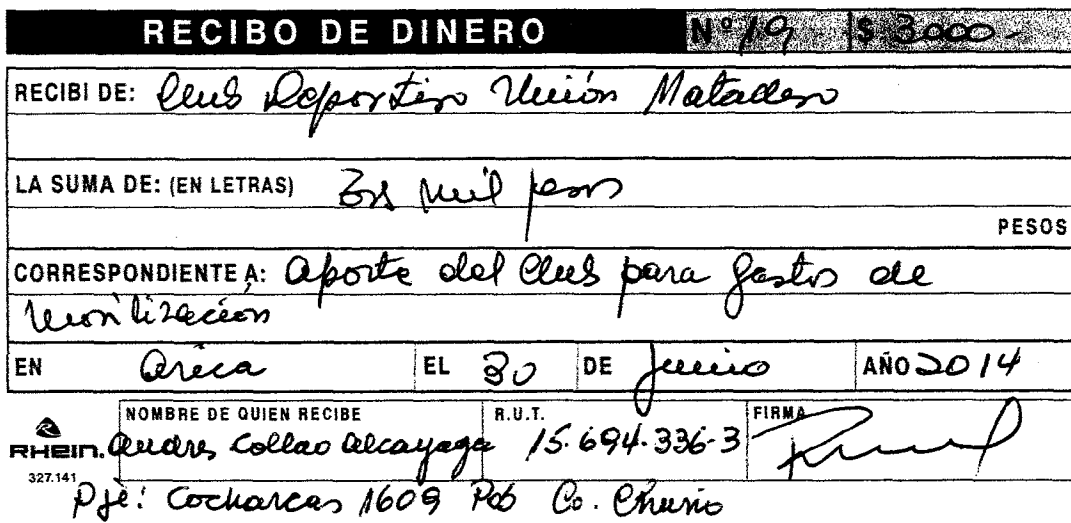 RECIBO DE DINERO Nº 19 $ 3000-
RECIBI DE: Club Deportivo Unión Matadero
LA SUMA DE: (EN LETRAS) Tres mil pesos
PESOS
CORRESPONDIENTE A: Aporte del Club para gastos de
movilización
EN Arica EL 30 DE Junio AÑO 2014
NOMBRE DE QUIEN RECIBE R.U.T. FIRMA
RHEIN. Andres Collao Alcayaga 15.694.336-3
327.141
Pje: Cocharcas 1609 Pob Co. Chuño